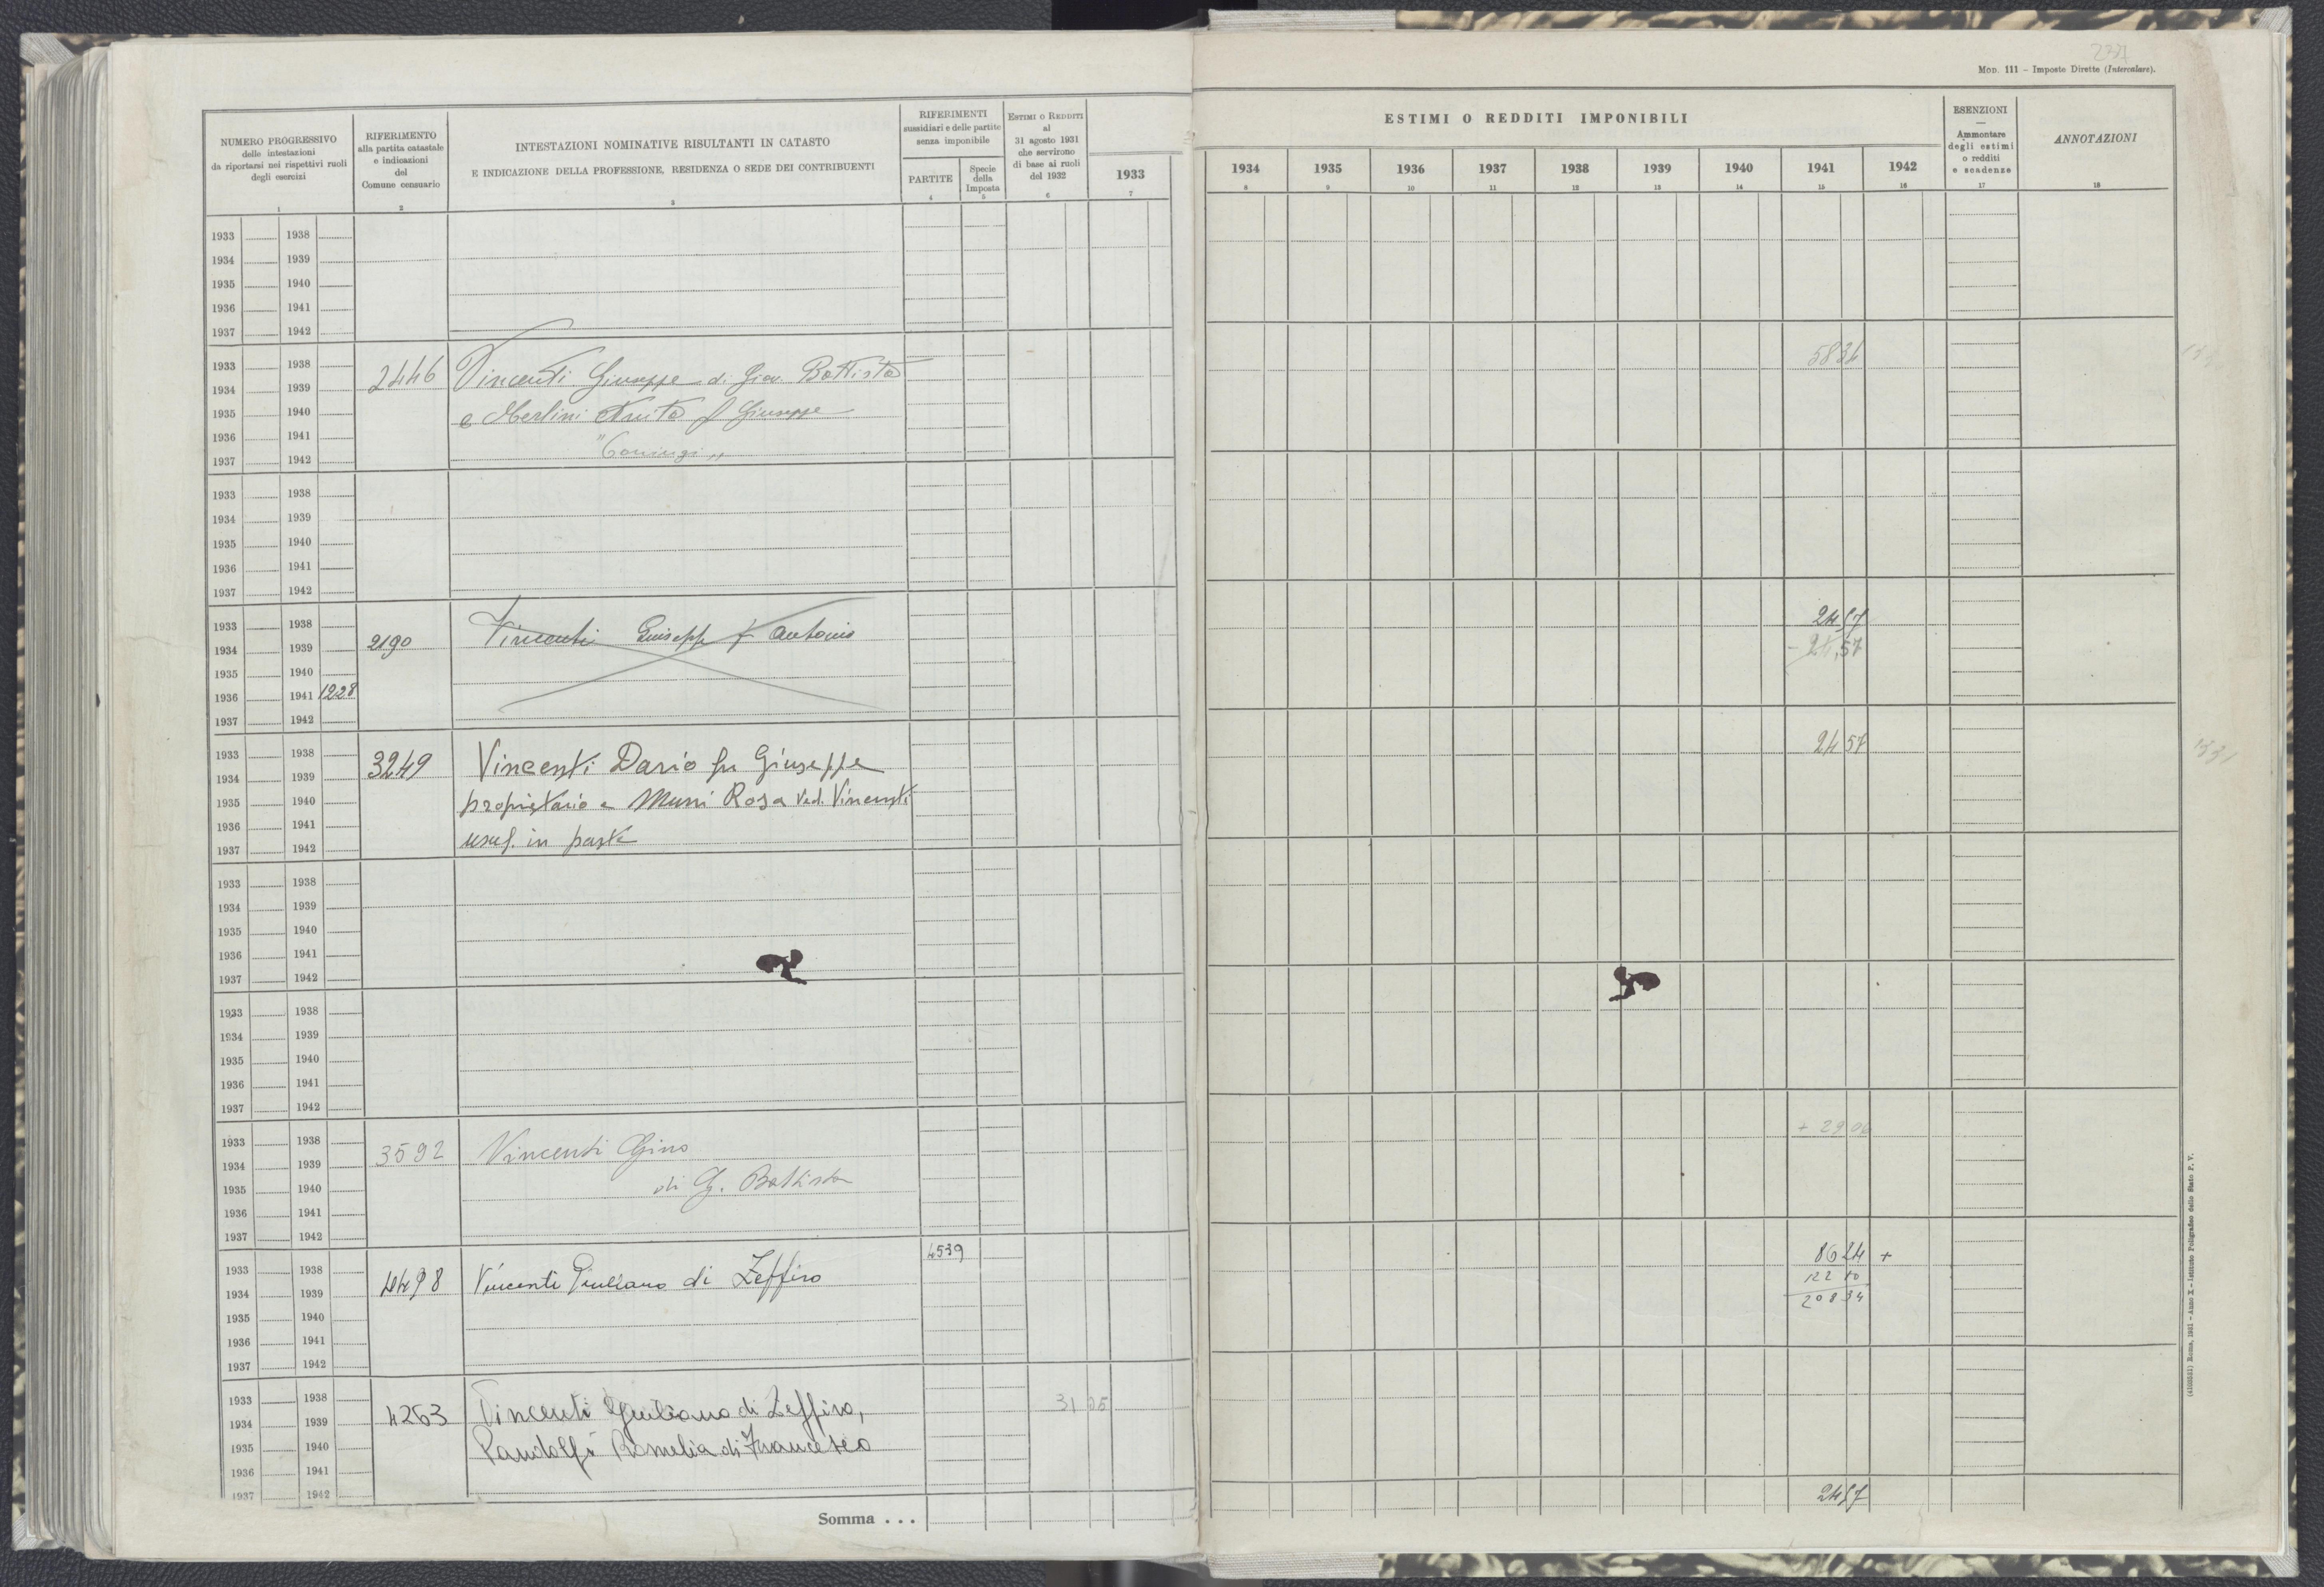 234
MOD. 111 – Imposte Dirette (Intercalare).
NUMERO PROGRESSIVO
delle intestazioni
da riportarsi nei rispettivi ruoli
degli esercizi
1
RIFERIMENTO
alla partita catastale
e indicazioni
del
Comune censuario
2
INTESTAZIONI NOMINATIVE RISULTANTI IN CATASTO
E INDICAZIONE DELLA PROFESSIONE, RESIDENZA O SEDE DEI CONTRIBUENTI
3
RIFERIMENTI
sussidiari e delle partite
senza imponibile
PARTITE
4
Specie
della
Imposta
5
ESTIMI O REDDITI
al
31 agosto 1931
che servirono
di base ai ruoli
del 1932
6
1933
7
ESTIMI O REDDITI IMPONIBILI
1934 1935 1936 1937 1938 1939 1940 1941 1942
8 9 10 11 12 13 14 15 16
ESENZIONI
—
Ammontare
degli estimi
o redditi
e scadenze
17
ANNOTAZIONI
18
1933 1938
1934 1939
1935 1940
1936 1941
1937 1942
1933 1938
1934 1939
1935 1940
1936 1941
1937 1942
2446 Vincenti Giuseppe di Giov. Battista
e Merlini Anita f Giuseppe
"Coniugi"
5834
1933 1938
1934 1939
1935 1940
1936 1941
1937 1942
1933 1938
1934 1939
1935 1940
1936 1941 1228
1937 1942
2190 Vincenti Giuseppe f Antonio
2457
- 24,57
1933 1938
1934 1939
1935 1940
1936 1941
1937 1942
3249 Vincenti Dario fu Giuseppe
proprietario e Muni Rosa Ved. Vincenti
usuf. in parte
2457
1933 1938
1934 1939
1935 1940
1936 1941
1937 1942
1933 1938
1934 1939
1935 1940
1936 1941
1937 1942
1933 1938
1934 1939
1935 1940
1936 1941
1937 1942
3592 Vincenti Gino
di G. Battista
+ 29 06
1933 1938
1934 1939
1935 1940
1936 1941
1937 1942
4498 Vincenti Giuliano di Zeffiro
4539
8624 +
122 10
208 34
1933 1938
1934 1939
1935 1940
1936 1941
1937 1942
4263 Vincenti Giuliano di Zeffiro,
Pandolfi Romelia di Francesco
31 05
Somma . . .
2457
(4100321) Roma, 1931 – Anno X – Istituto Poligrafico dello Stato P. V.